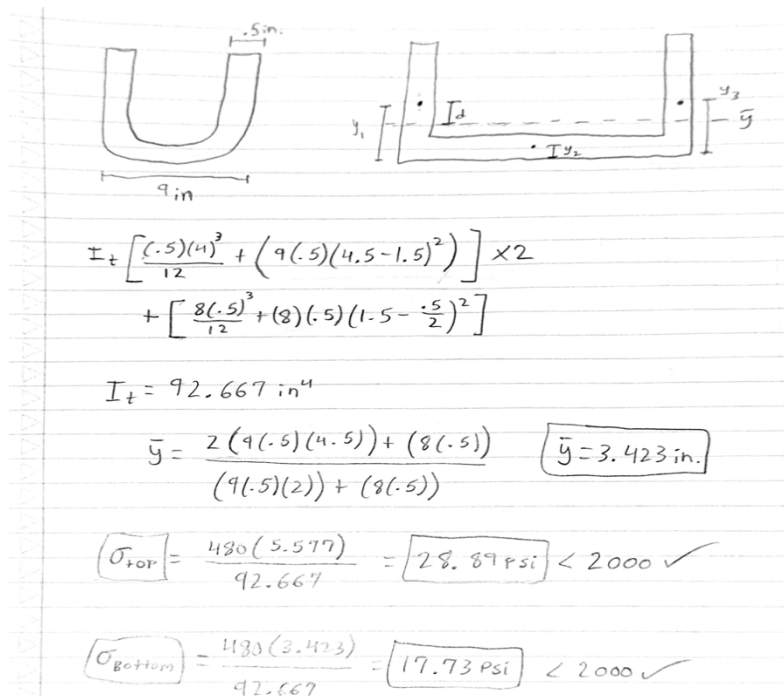 .5in.
y₁ I d y₃ ȳ
I y₂
9 in
I_t [ (.5)(4)³/12 + (9(.5)(4.5-1.5)²) ] ×2
+ [ 8(.5)³/12 + (8)(.5)(1.5 - .5/2)² ]
I_t = 92.667 in⁴
ȳ = (2(9(.5)(4.5)) + (8(.5))) / ((9(.5)(2)) + (8(.5))) ȳ=3.423 in.
σ_TOP = 480(5.577)/92.667 = 28.89 psi < 2000 ✓
σ_Bottom = 480(3.423)/92.667 = 17.73 psi < 2000 ✓